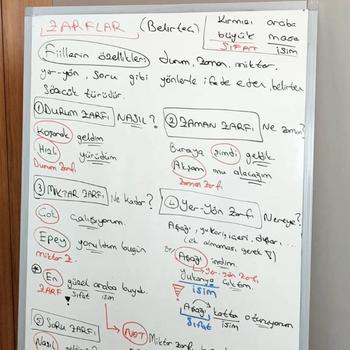 ZARFLAR (Belirteç)
Kırmızı araba
büyük masa
SIFAT isim
Fiillerin özellikleri durum, zaman, miktar,
yer-yön, soru gibi yönlerle ifade eden, belirten
sözcük türüdür.
① DURUM ZARFI NASIL?
Koşarak geldim
Hızlı yürüdüm
Durum Zarfı
② ZAMAN ZARFI Ne zaman?
Buraya şimdi geldik
Akşam mı alacağım
Zaman Zarfı
③ MİKTAR ZARFI Ne kadar?
Çok çalışıyorum
Epey yoruldum bugün
Miktar Z.
* En güzel araba buydu
ZARF sıfat isim
④ Yer-Yön Zarfı Nereye?
Aşağı, yukarı, içeri, dışarı...
(ek almaması gerek)
Aşağı indim.
Yer-yön Zarfı
Yukarıya çıktım
isim
Aşağı katta oturuyorum
Sıfat isim
⑤ SORU ZARFI
Nasıl
NOT Miktar